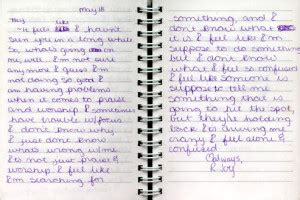 May 18
Hey
It feels like I haven't
seen you in a long while.
So, what's going on in
me, well I'm not sure
any more I guess I'm
not doing so good I
am having problems
when it comes to praise
and worship & sometimes
have trouble w/focus
& I don't know why
I just done know
whats wrong w/me
its not just praise &
worship I feel like
I'm searching for
something, and I
don't know what
it is I feel like I'm
suppose to do something
but I don't know
what I feel so confused
I feel like someone is
suppose to tell me
something that is
going to hit the spot,
but they're holding
back & its driving me
crazy & I feel alone &
confused
Always,
K Joy